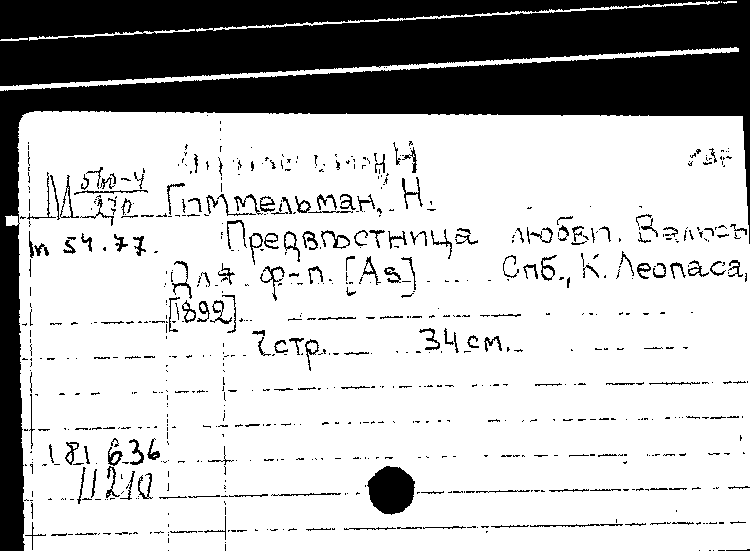 М 560-4/270 Гиммельман, Н.
m 54.77. Предвѣстница любви. Вальсъ
Для ф-п. [As] Спб., К. Леопаса,
[1892].
7 стр. 34 см.
181 636
11210